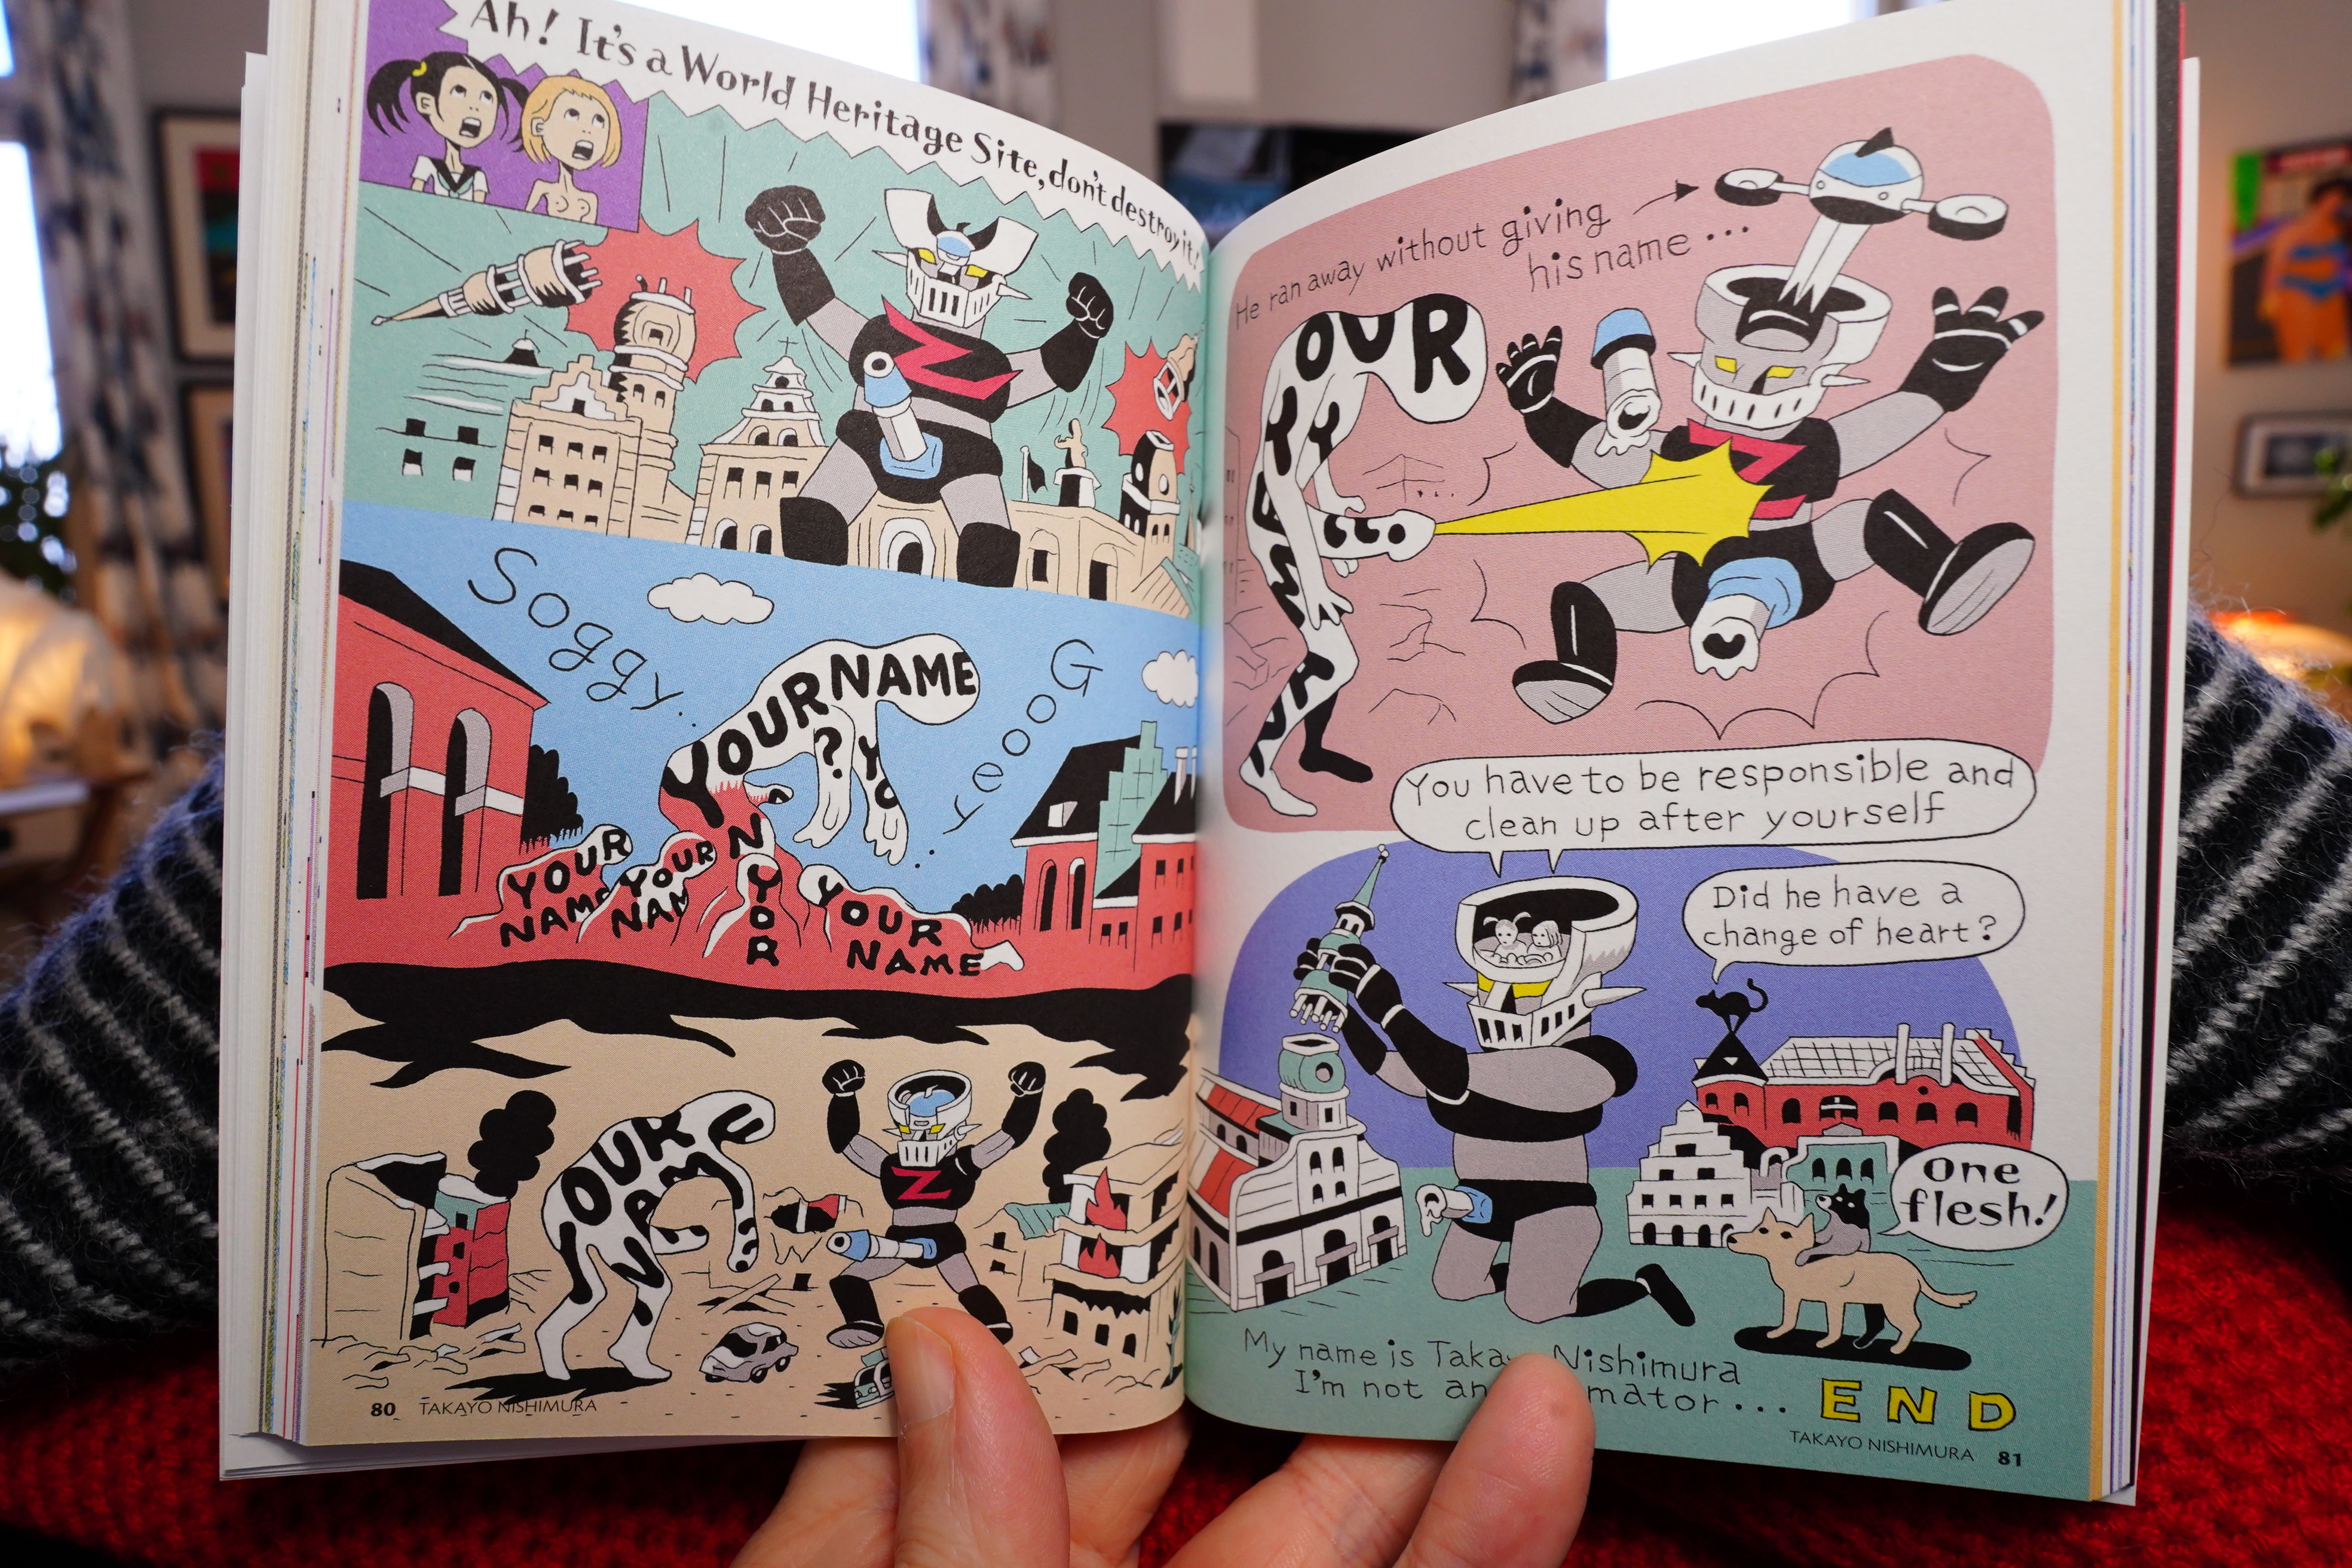 Ah! It's a World Heritage Site, don't destroy it!
Z
Soggy..
Gooey...
YOUR NAME
YOUR
?
YO
YOUR
NAME
YOUR
NAM
N
YOR
YOUR
NAME
OUR
NAM
Z
80 TAKAYO NISHIMURA
He ran away without giving
his name...
OUR
Z
You have to be responsible and
clean up after yourself
Did he have a
change of heart?
One
flesh!
My name is Nishimura
I'm not an
END
TAKAYO NISHIMURA 81